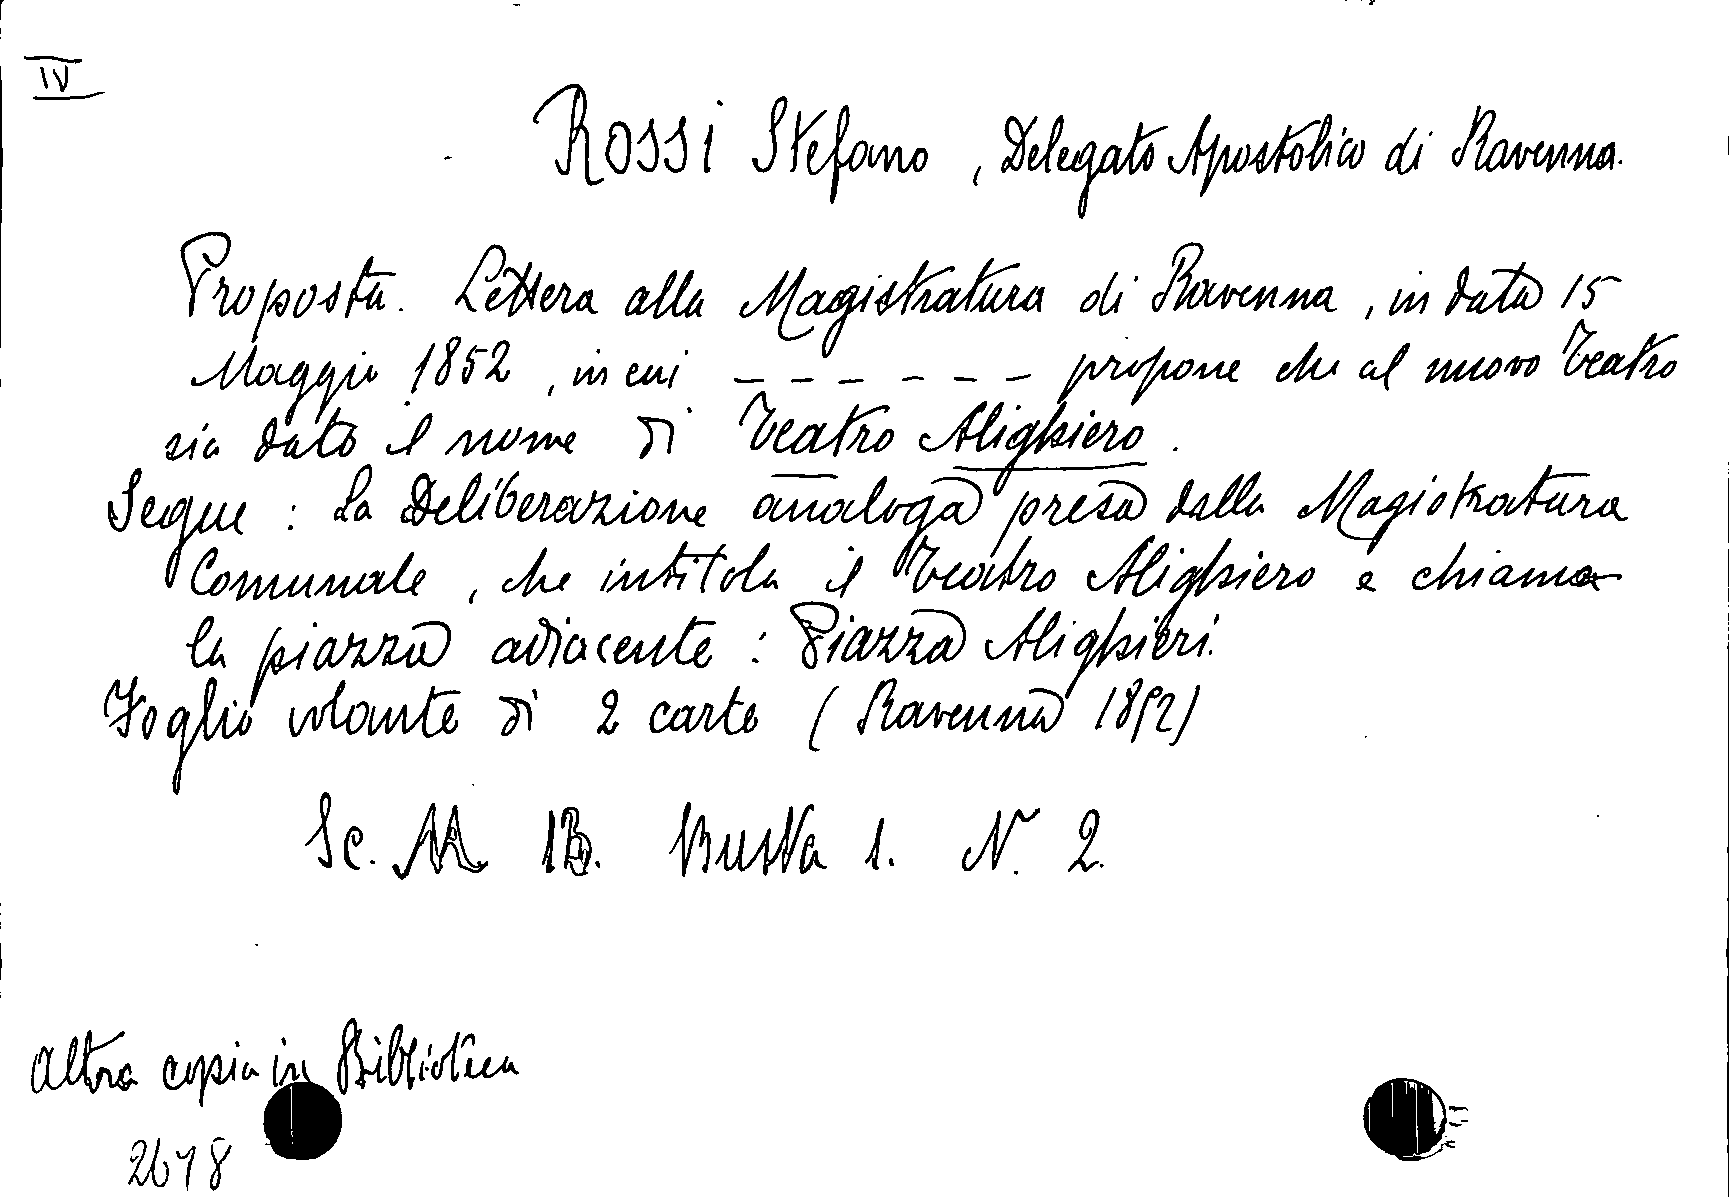 IV
ROSSI Stefano, Delegato Apostolico di Ravenna.
Proposta. Lettera alla Magistratura di Ravenna, in data 15
Maggio 1852, in cui _ _ _ _ _ _ _ propone che al nuovo Teatro
sia dato il nome di Teatro Alighiero.
Segue: La Deliberazione analoga presa dalla Magistratura
Comunale, che intitola il Teatro Alighiero e chiama
la piazza adiacente: Piazza Alighieri.
Foglio volante di 2 carte (Ravenna 1852)
Sc. M 1B. Busta 1. N. 2.
Altra copia in Biblioteca
2678